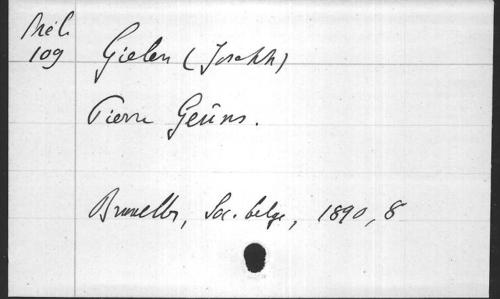 Mél.
109
Gielen (Joseph)
Pierre Geüns.
Bruxelles, Soc. belge, 1890, 8